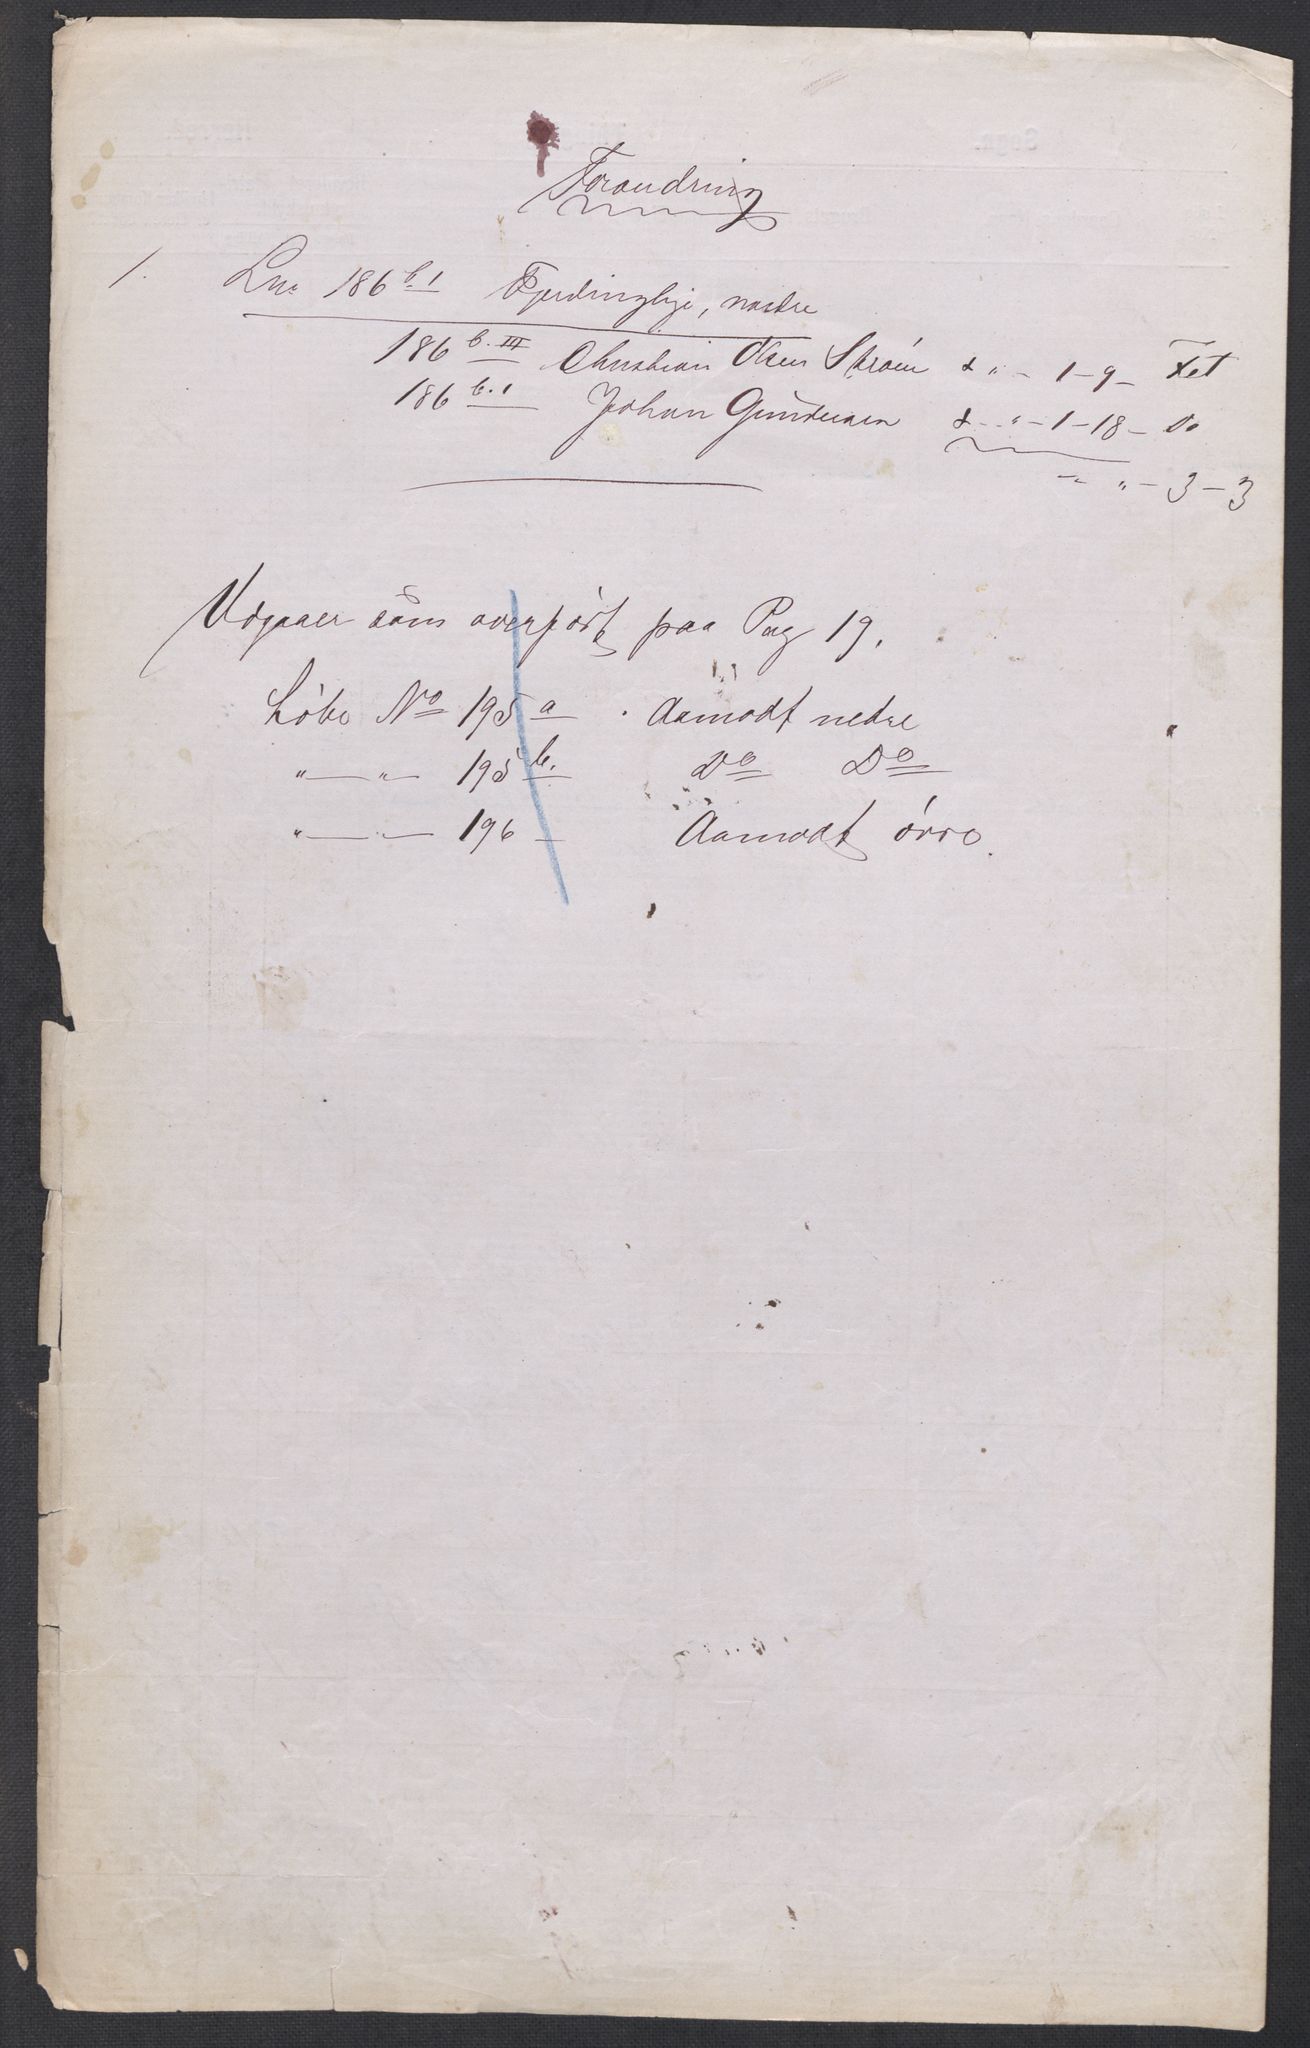 Forandring
1. Lno 186 b.1 Fjerdingbye, nordre
186 b.III Christian Olsen Skrøen d " - 1 - 9 - Fet
186 b.1 Johan Gundersen d " - 1 - 18 - Do
" " - 3 - 3
Udgaaer som overført paa Pag 19.
Løbe No 195 a . Aamodt nedre
" — " — 195 b. Do Do
" — " — 196 — Aamodt övre.